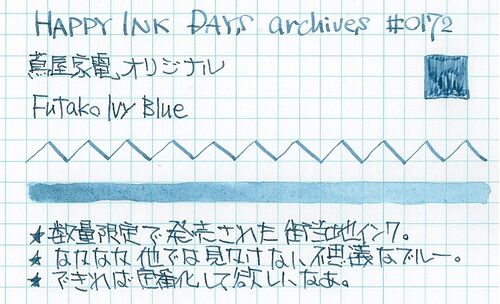 HAPPY INK DAYS archives #0172
蔦屋家電オリジナル
Futako Ivy Blue
★数量限定で発売された御当地インク。
★なななな他では見かけない不思議なブルー。
★できれば定番化して欲しいなあ。